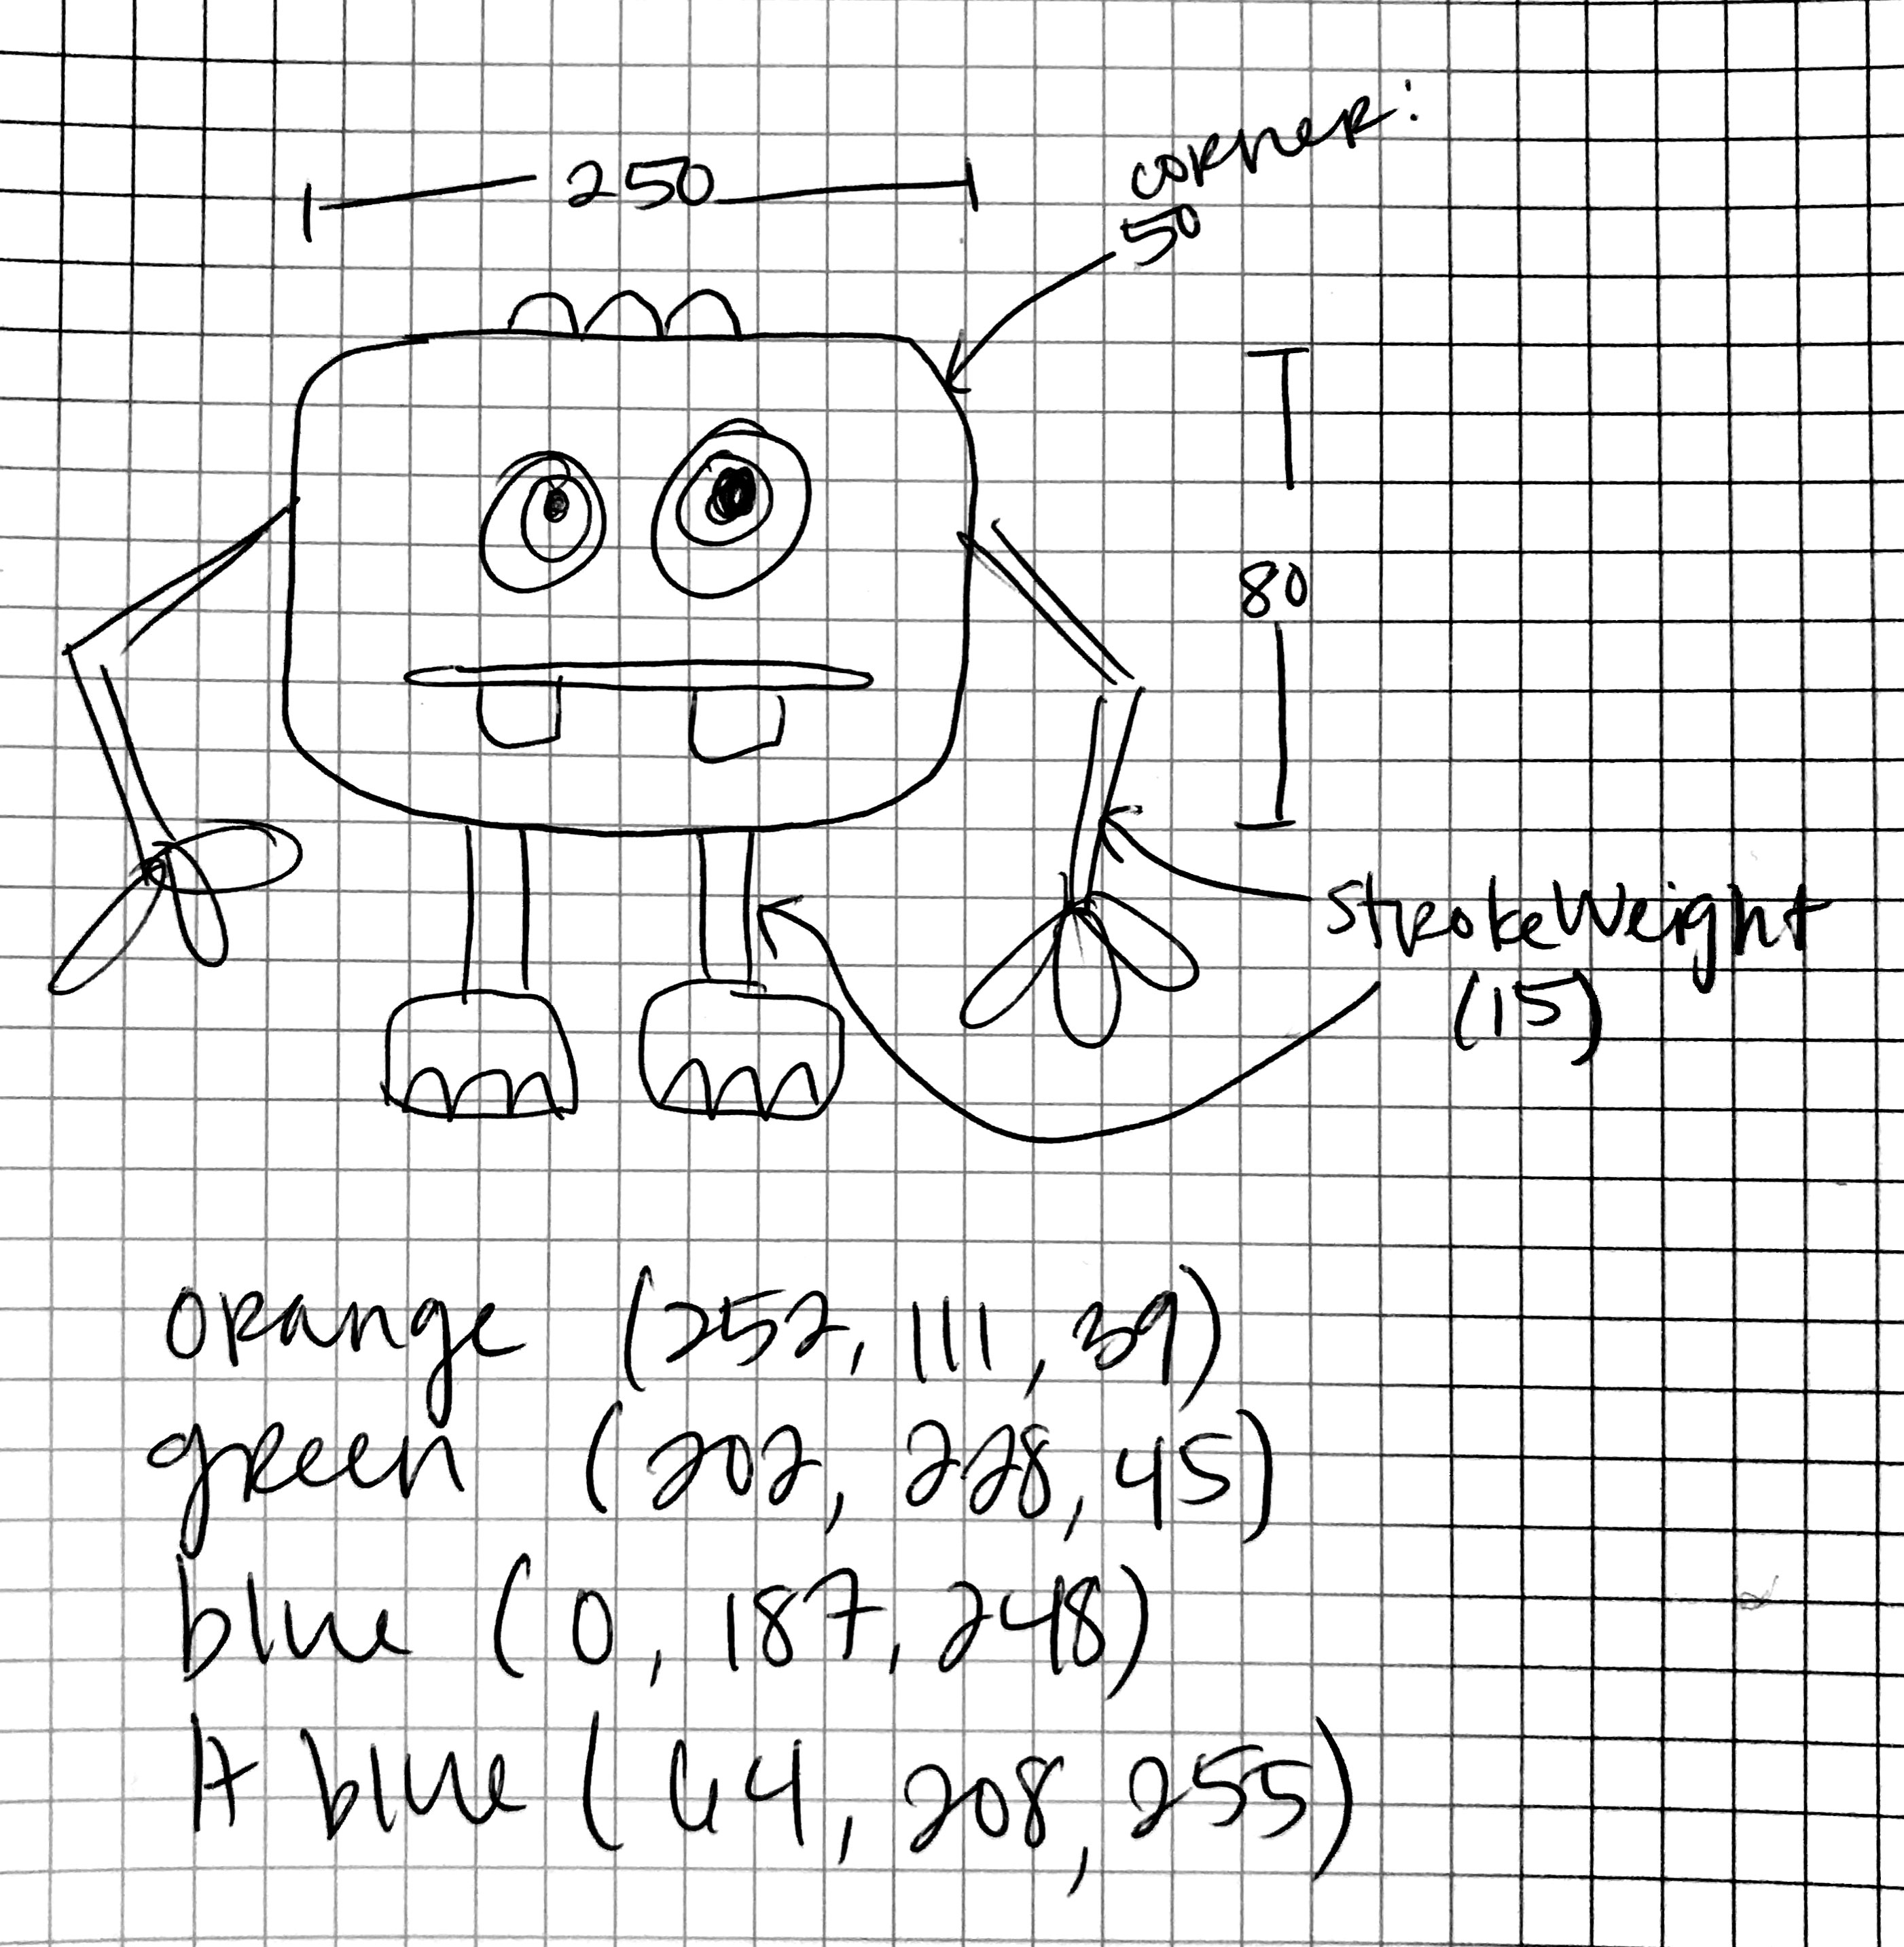 250
corner:
50
80
strokeWeight
(15)
orange (252, 111, 39)
green (202, 228, 45)
blue (0, 187, 248)
lt blue (64, 208, 255)